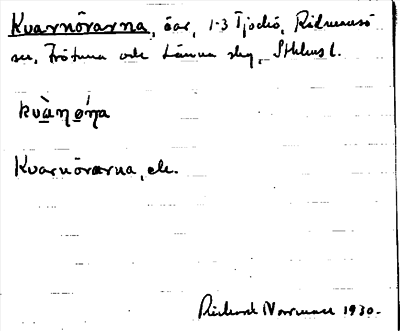 Kvarnörarna, öar, 1-3 Tjockö, Rådmansö
sn, Frötuna och Länna skg, Sthlms l.
kvànǿna
Kvarnörarna, ek.
Rickard Norrman 1930.